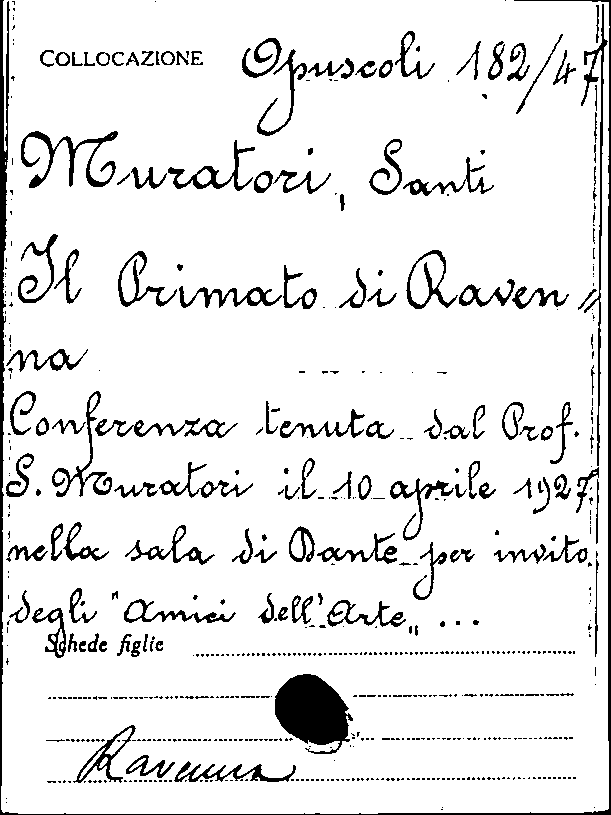 COLLOCAZIONE Opuscoli 182/47
Muratori, Santi
Il Primato di Raven〃
na
Conferenza tenuta dal Prof.
S. Muratori il 10 aprile 1927
nella sala di Dante per invito
degli "Amici dell'Arte„ ...
Schede figlie
Ravenna